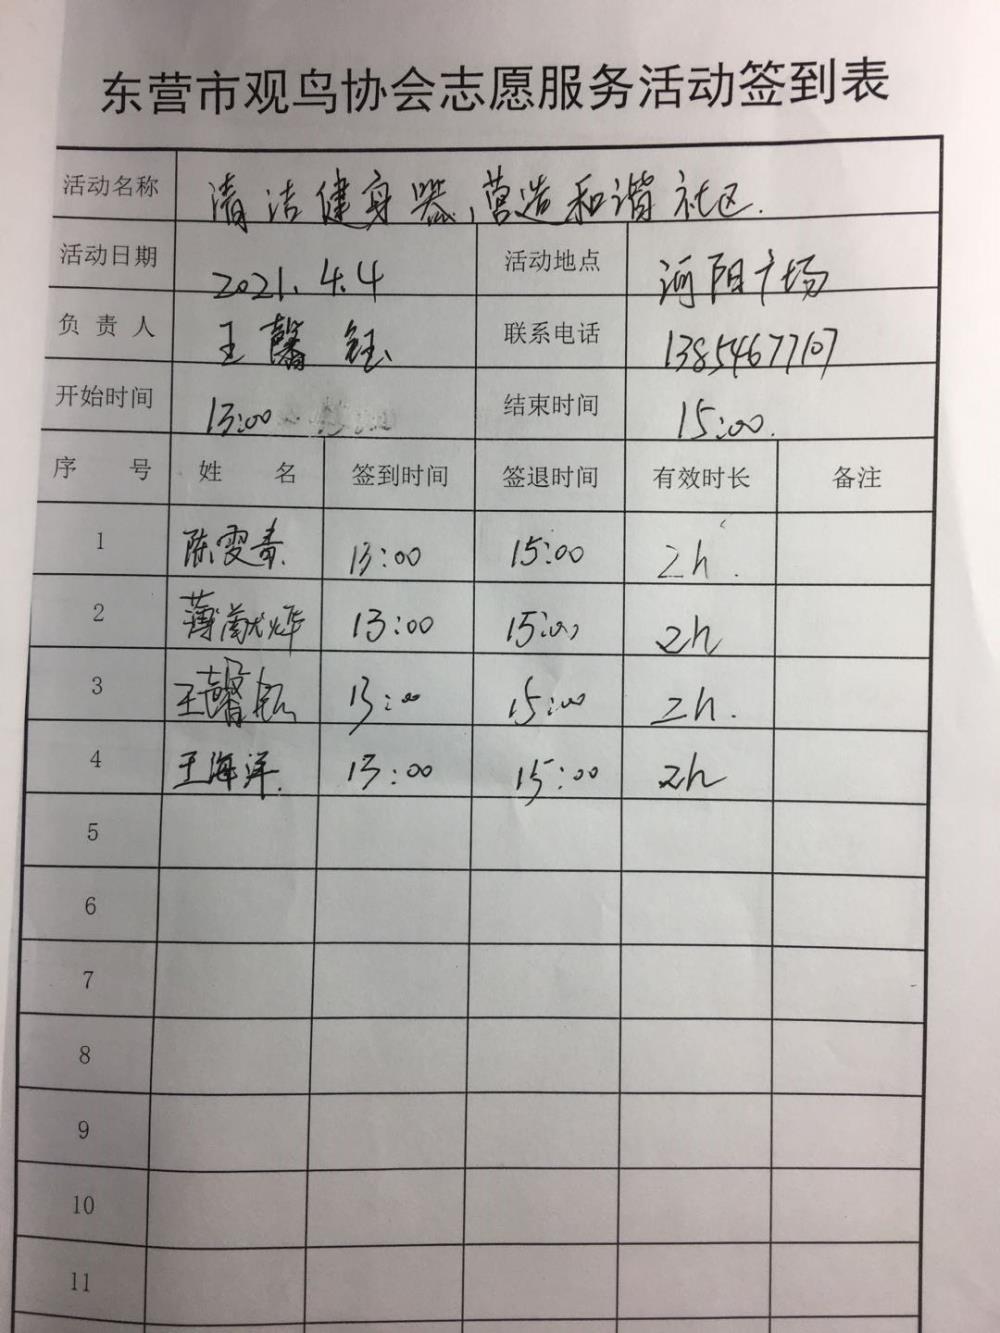 东营市观鸟协会志愿服务活动签到表
活动名称 清洁健身器,营造和谐社区.
活动日期 2021.4.4 活动地点 河阳广场
负责人 王馨钰 联系电话 13854677107
开始时间 13:00 结束时间 15:00.
序号 姓名 签到时间 签退时间 有效时长 备注
1 陈雯青 13:00 15:00 2h.
2 薄献烨 13:00 15:00 2h
3 王馨钰 13:00 15:00 2h.
4 王海洋. 13:00 15:00 2h
5
6
7
8
9
10
11